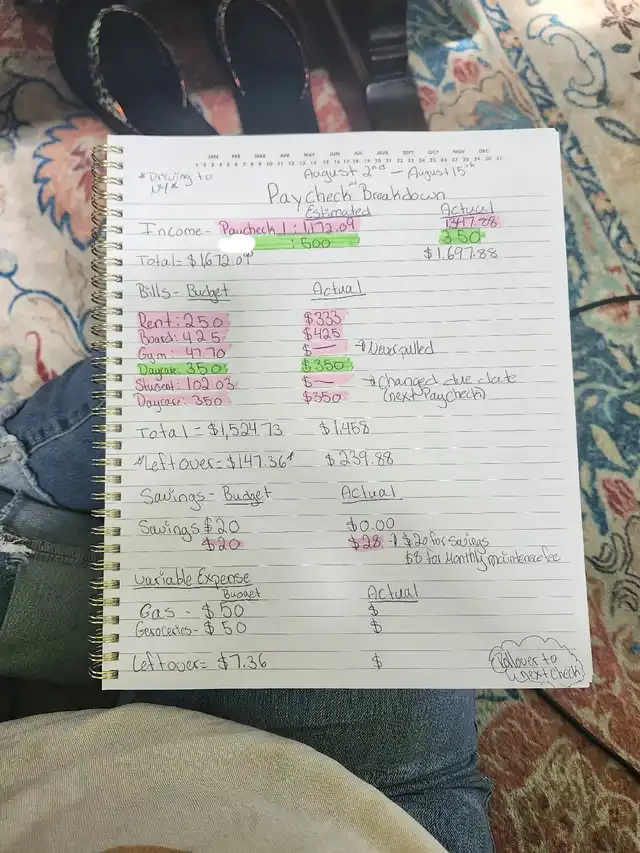 JAN FEB MAR APR MAY JUN JUL AUG SEP OCT NOV DEC
1 2 3 4 5 6 7 8 9 10 11 12 13 14 15 16 17 18 19 20 21 22 23 24 25 26 27 28 29 30 31
*Driving to NY*
August 2nd – August 15th
Paycheck Breakdown
Estimated Actual
Income- Paycheck 1: 1,172.09 1347.88
: 500 350
Total= $1,672.09 $1,697.88
Bills - Budget Actual
Rent: 250 $333
Board: 425 $425
Gym: 47.70 $ — Never pulled
Daycare: 350 $350
Student: 102.03 $ — → Changed due date
Daycare: 350 $350 (next Paycheck)
Total = $1,524.73 $1458
*Leftover= $147.36* $239.88
Savings - Budget Actual
Savings $20 $0.00
$20 $28 → $20 for savings
$8 for Monthly maintenefee
Variable Expense
Budget Actual
Gas - $50 $
Geroceries- $50 $
Leftover= $7.36 $
Rollover to
next check